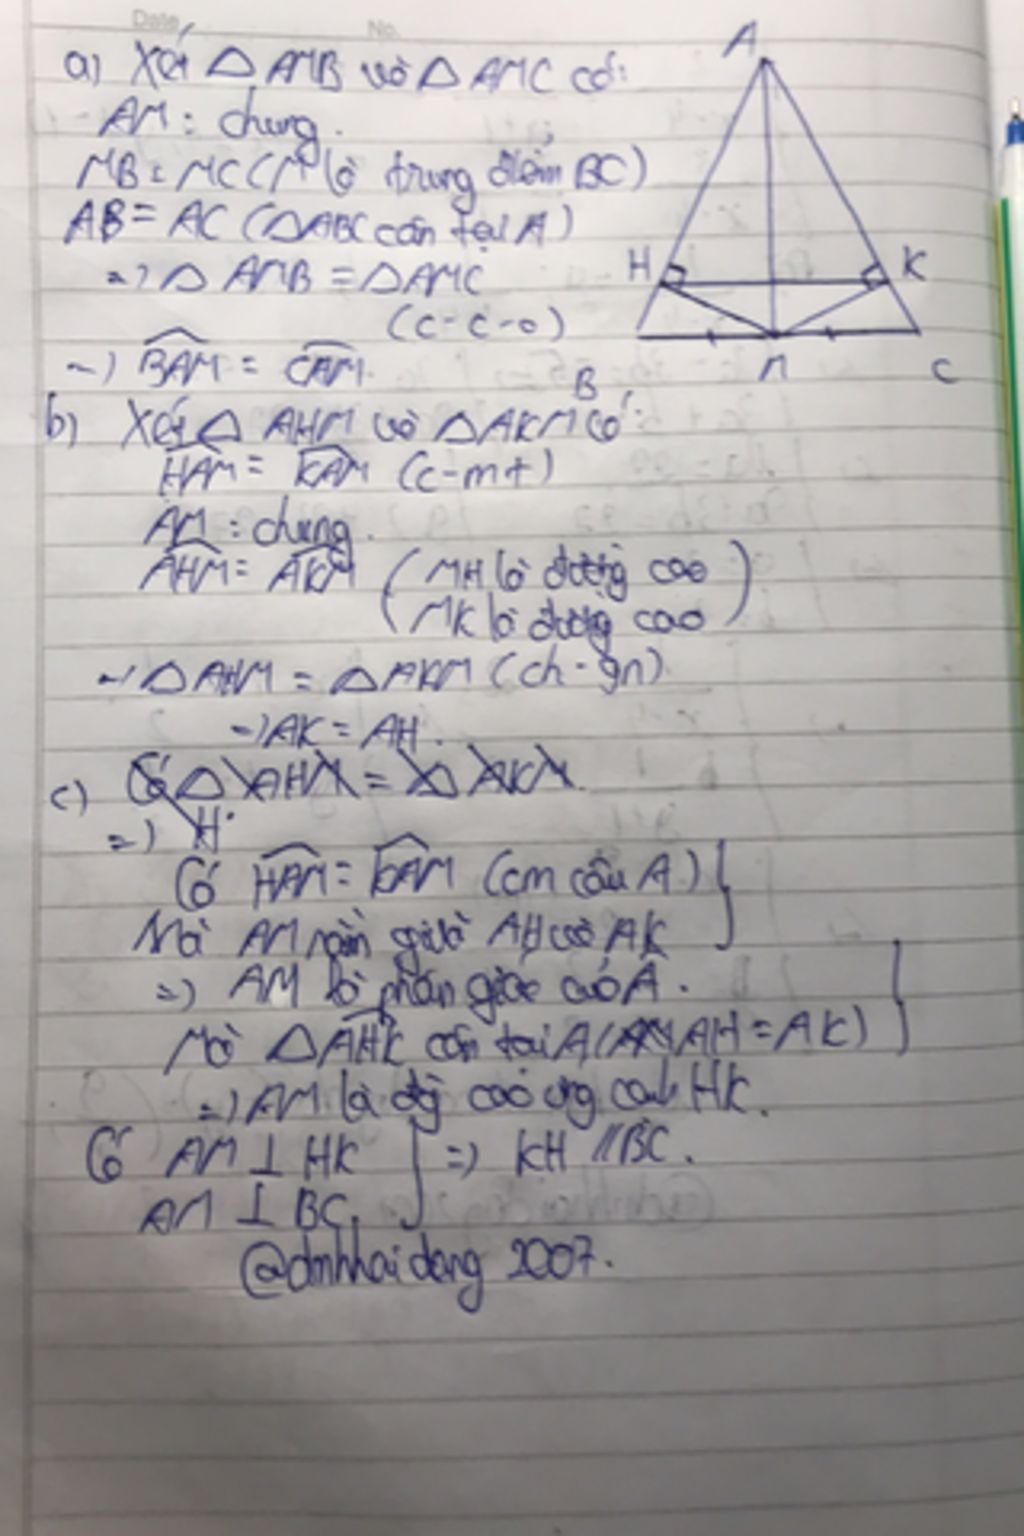 Date
No.
A
a) Xét △ AMB và △ AMC có:
AM : chung.
MB = MC (M là trung điểm BC)
AB = AC (△ABC cân tại A)
H
K
=> △ AMB = △AMC
(c-c-c)
=> BAM = CAM.
B
M
C
b) Xét △ AHM và △AKM có:
HAM = KAM (c-m+)
AM : chung.
AHM = AKM (MH là đường cao
MK là đường cao)
=> △ AHM = △AKM (ch-gn)
=> AK = AH.
c) Có △ AHM = △ AKM
=> H
Có HAM = KAM (cm câu A)
Mà AM nằm giữa AH và AK
=> AM là phân giác của A.
Mà △AHK cân tại A ( AH = AK)
=> AM là đg cao ứng cạnh HK.
Có AM ⊥ HK => KH // BC.
AM ⊥ BC.
@dmhhaidang 2007.